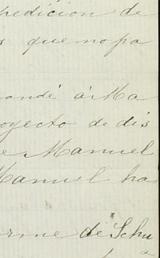 pedicion de
s que no pa
onde á Ma
oyecto de dis
e Manuel
Manuel ha
orme de Schu